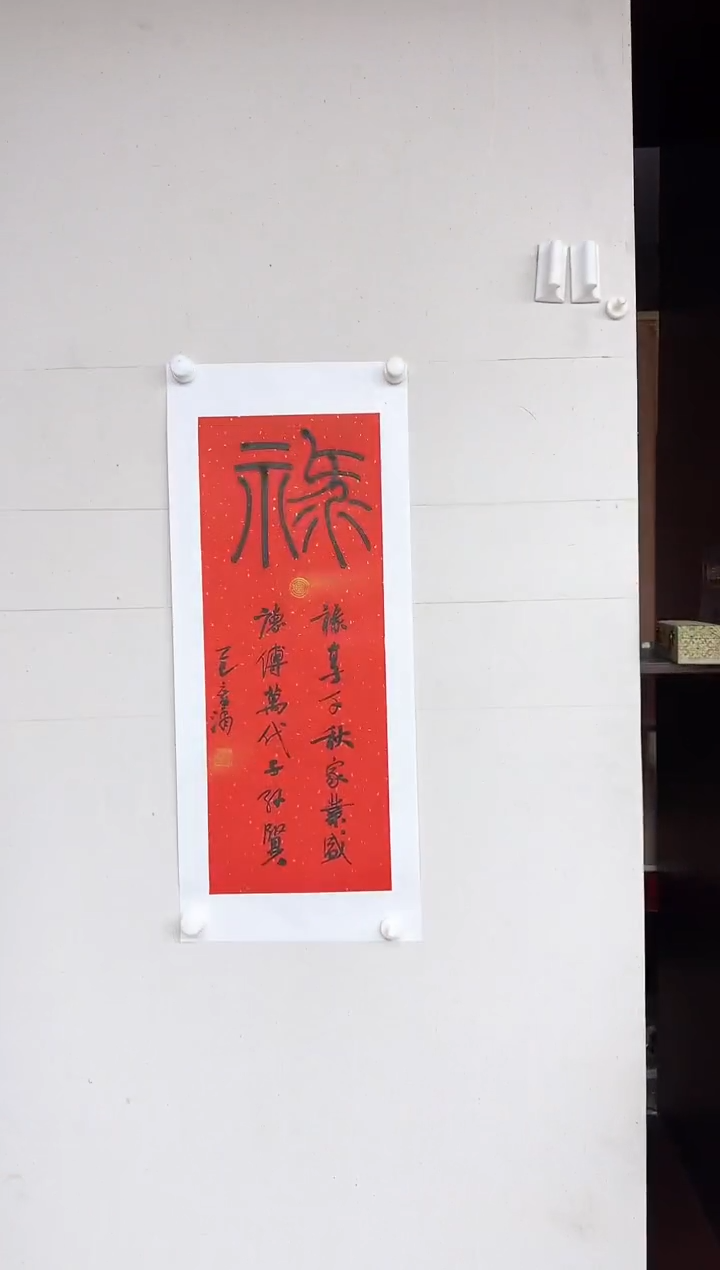 祿
祿享千秋家業盛
德傳萬代子孫賢